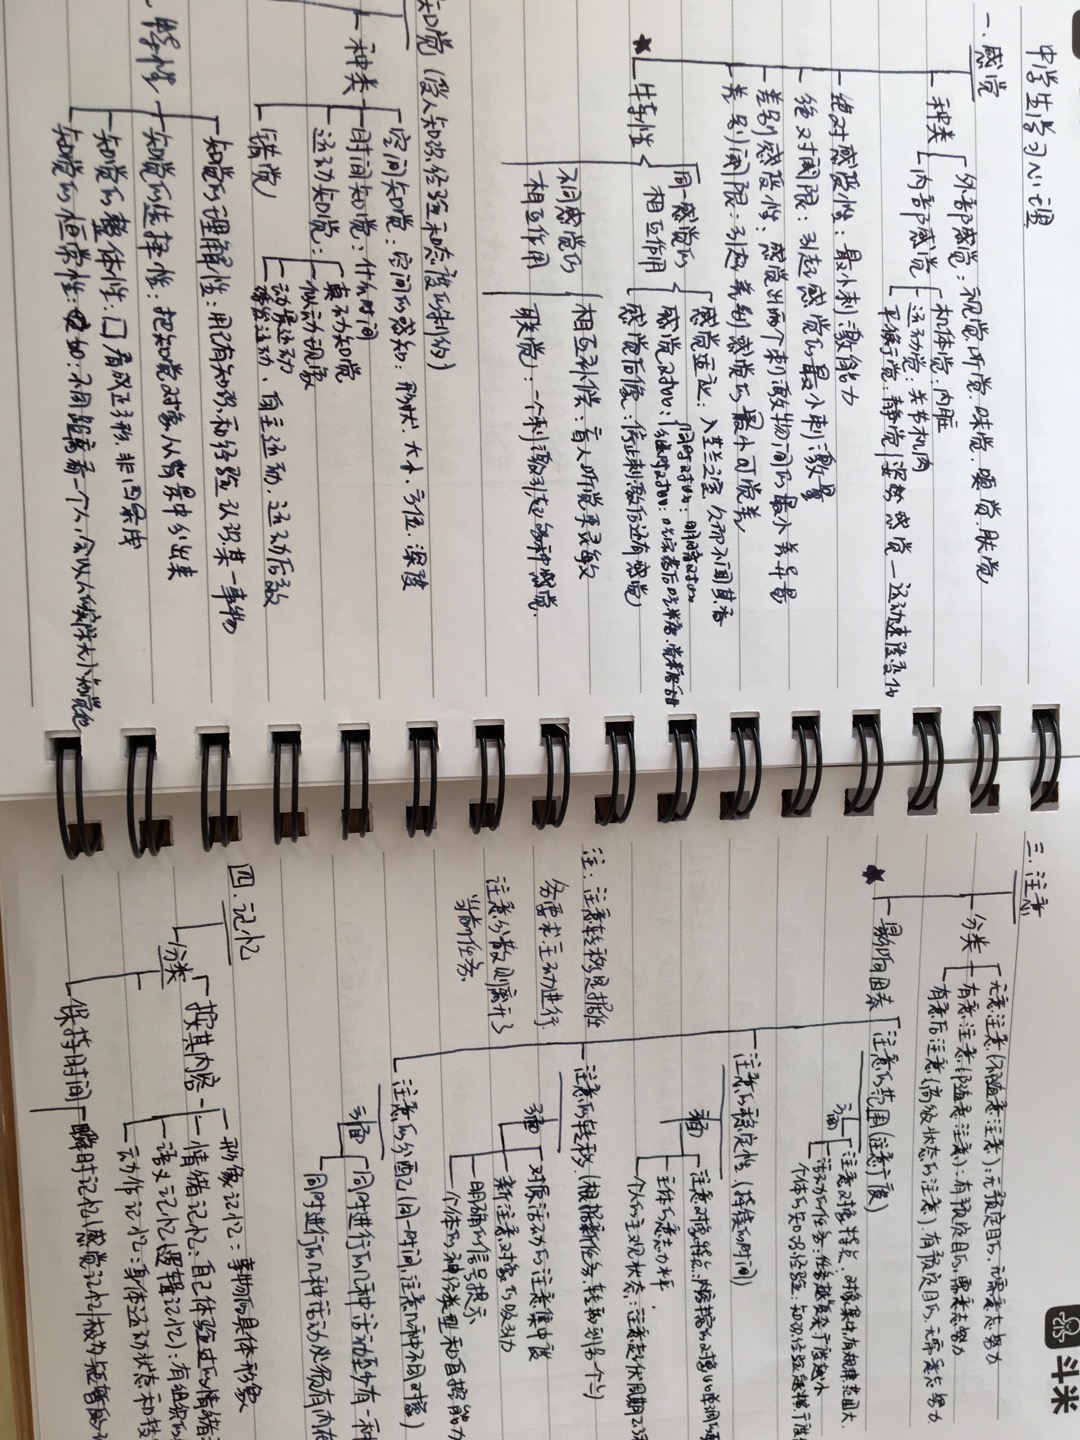 中学生学习心理
一.感觉
种类
外部感觉：视觉.听觉.味觉.嗅觉.肤觉
内部感觉
机体觉：内脏
运动觉：关节机肉
平衡觉：静觉(姿势感觉—运动速度变化
绝对感受性：最小刺激能力
绝对阈限：引起感觉的最小刺激量
差别感受性：感觉出两个刺激物间的最小差异量
差别阈限：引起差别感觉的最小可觉差
★
特性
同一感觉的相互作用
感觉适应、入芝兰之室久而不闻其香
感觉对比
同时对比：明暗对比
继时对比：吃完药后吃糖.觉糖甜
感觉后像：停止刺激后还有感觉
不同感觉的相互作用
相互补偿：盲人听觉更灵敏
联觉：一个刺激引起多种感觉.
知觉(受人知识.经验和态度的制约)
种类
空间知觉：空间的感知：形状.大小.方位.深度
时间知觉：什么时间
运动知觉：
真动知觉
似动现象
动景运动
诱发运动、自主运动、运动后效
错觉
特性
知觉的理解性：用已有知识和经验认识某一事物
知觉的选择性：把知觉对象从背景中分出来
知觉的整体性：囗看成正方形.非四条线
知觉的恒常性：如：不同距离看一个人,会以人的实际大小知觉他
三.注意
分类
无意注意(不随意注意)：无预定目的,不需意志努力
有意注意(随意注意)：有预定目的,需意志努力
有意后注意(高级状态的注意)：有预定目的.无需意志努力
★
影响因素
注意的范围(注意广度)
方面
注意对象特点、对象集中有规律范围大
活动的任务：任务越复杂广度越小
个体的知识经验：知识经验越
注意的稳定性(持续的时间)
方面
注意对象特点
主体的意志力水平
个人的主观状态：注意起伏周期2.3
注意的转移.(根据新任务,转移到另一个上)
方面
对原活动的注意集中度
新注意对象的吸引力
明确的信号提示
个体的神经类型和自控能力
注：注意转移是据任务要求主动进行.
注意分散则离开了当前任务.
注意的分配(同一时间,注意几种不同对象)
方面
同时进行的几种活动至少有一种
同时进行的几种活动必须有内在
四.记忆
分类
按其内容
形象记忆：事物的具体形象
情绪记忆：自己体验过的情绪
语义记忆(逻辑记忆)：有组织的
动作记忆：身体运动状态和技
保持时间
瞬时记忆(感觉记忆)极为短暂的
斗米